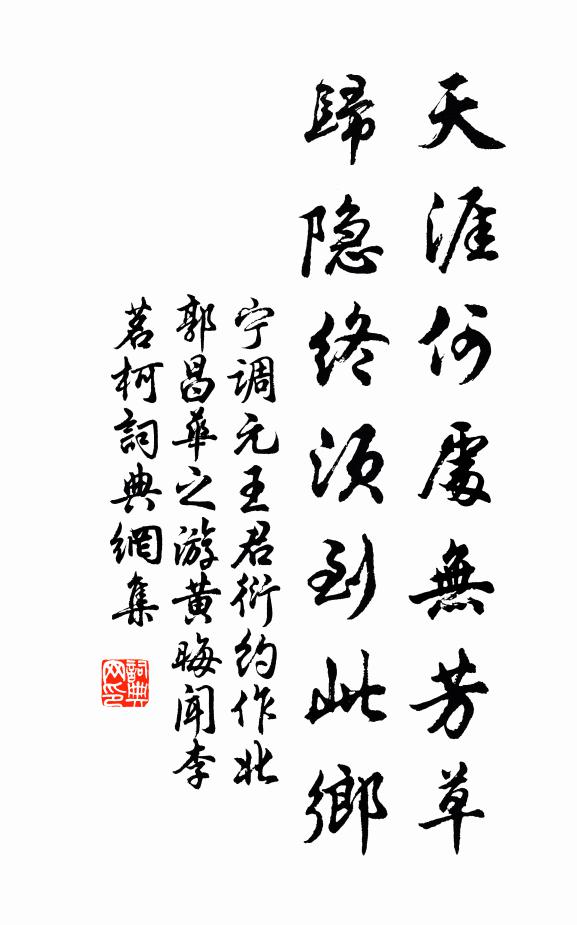 天涯何處無芳草
歸隐終須到此鄉
宁調元王君衍约作北
郭昌華之游黄晦闻李
茗柯詞典網集
詞典网印